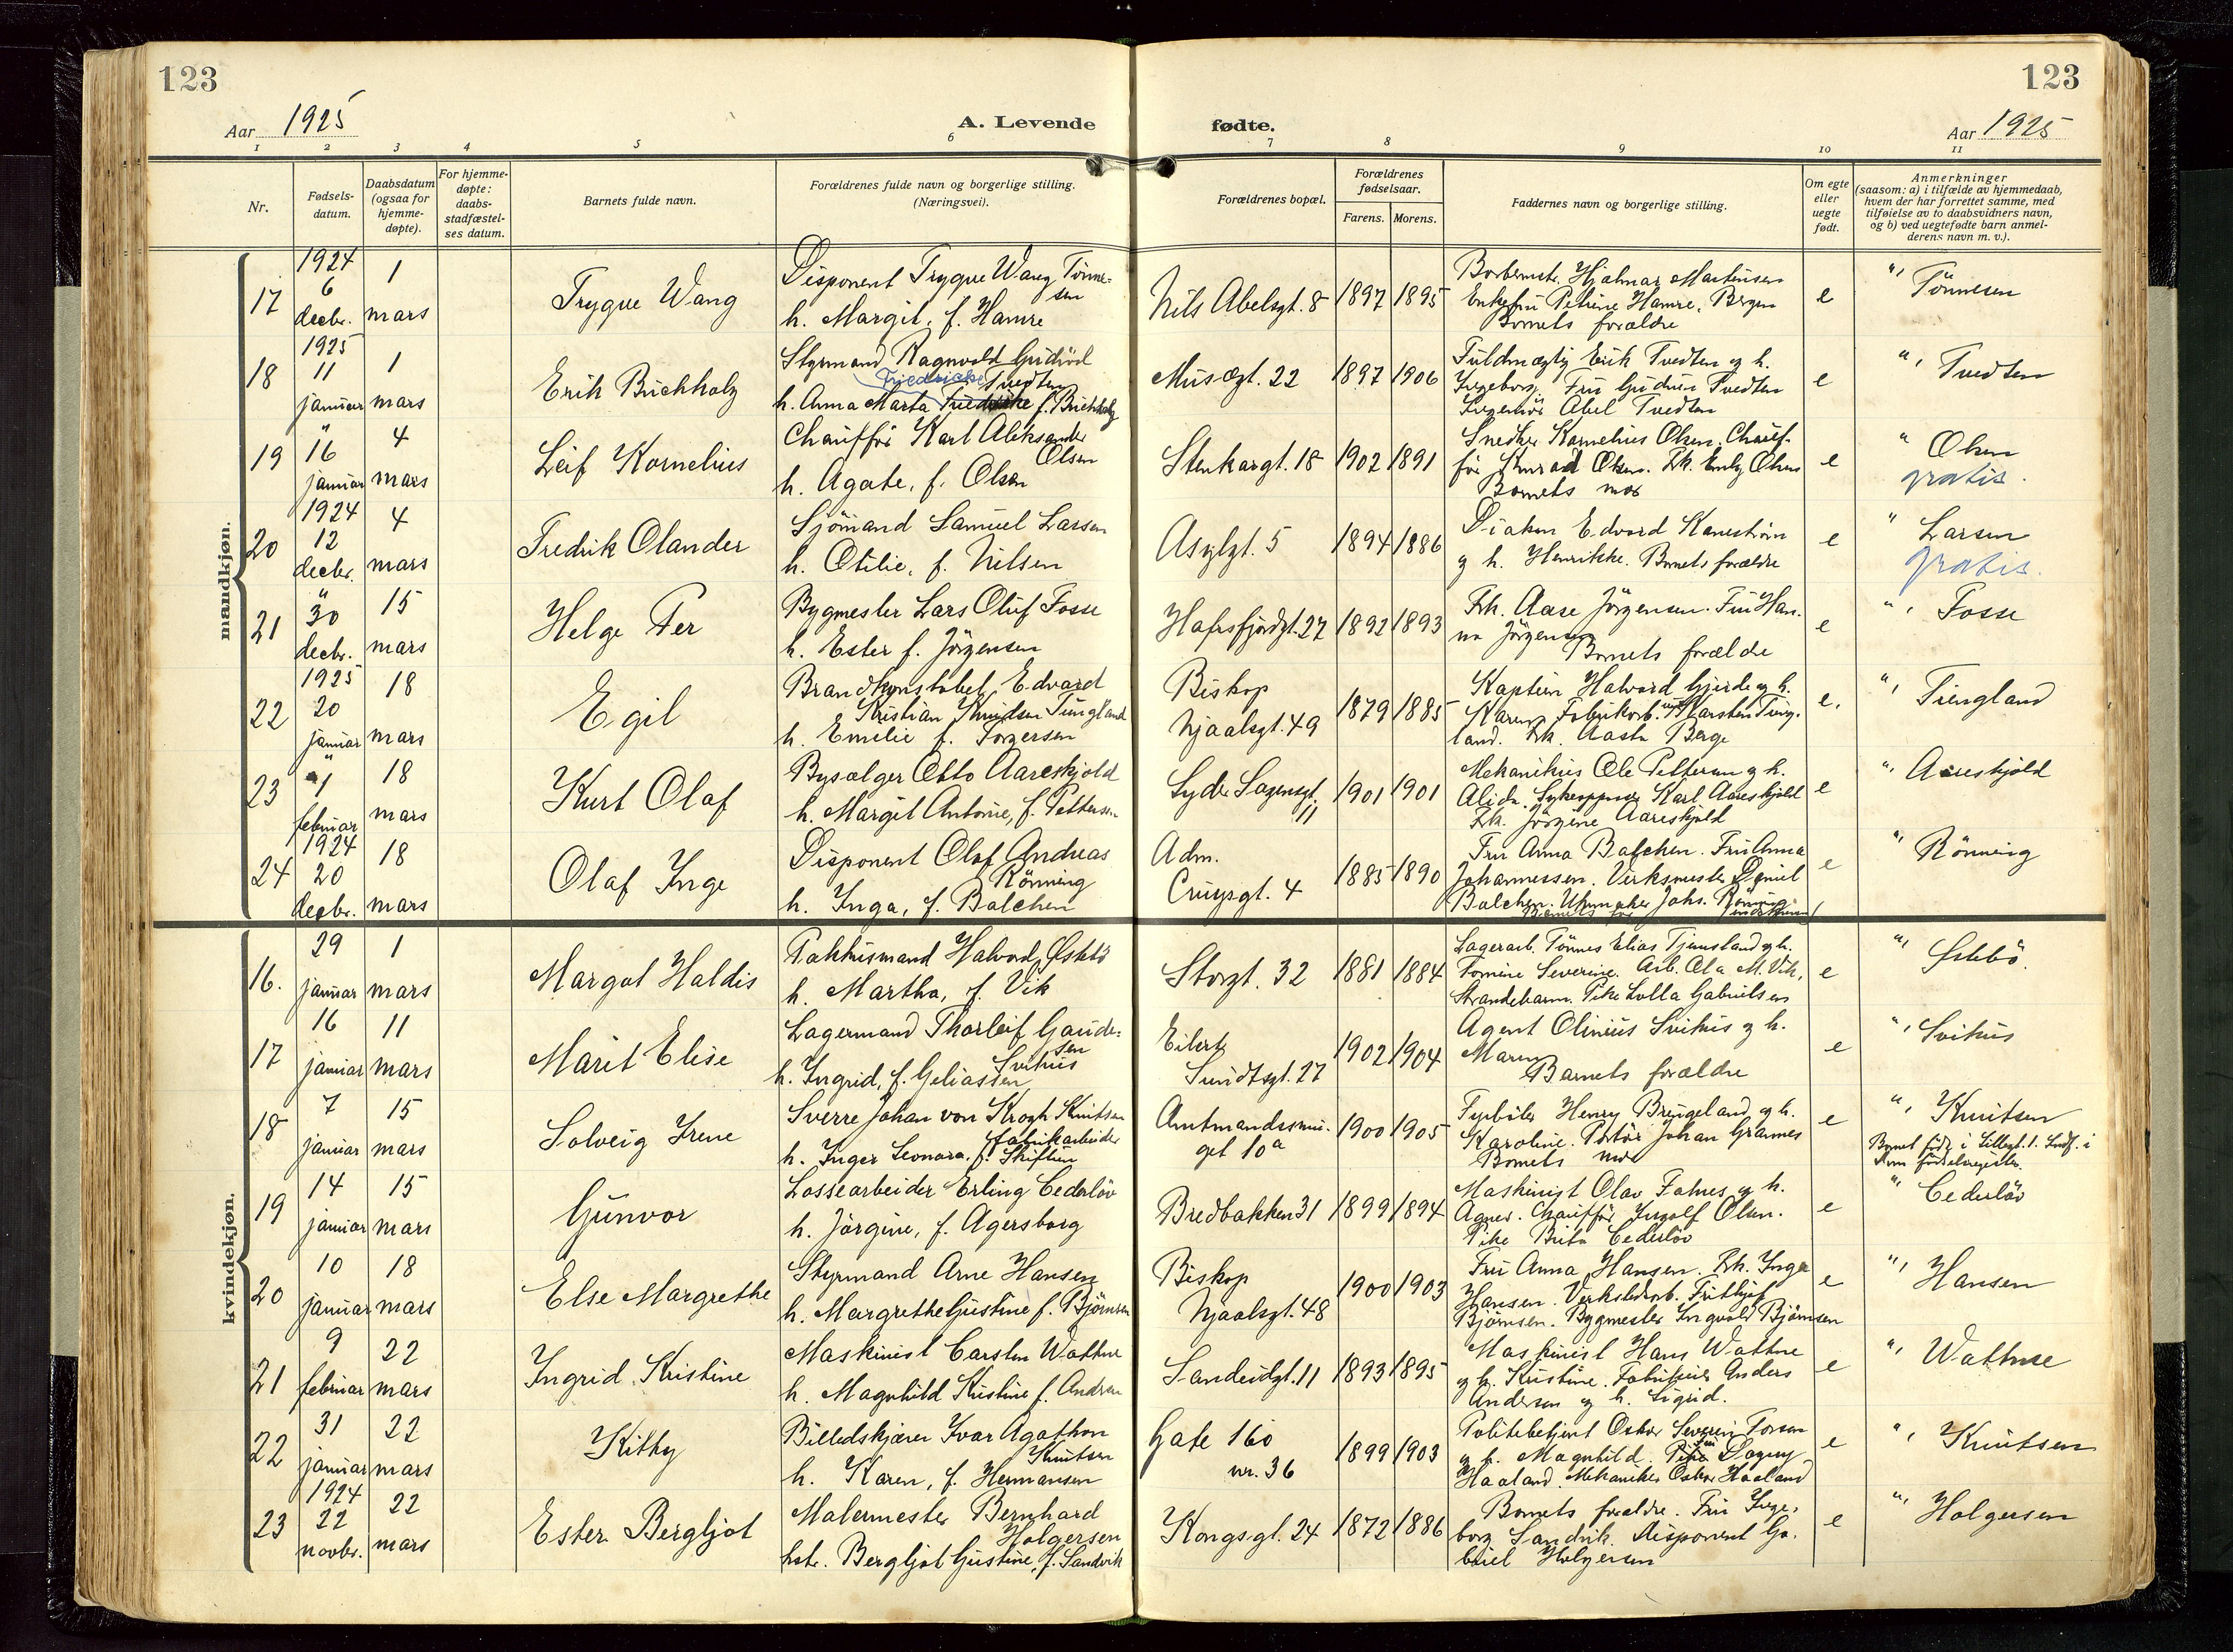 123
123
Aar 1925
A. Levende
fødte.
Aar 1925
1 2 3 4 5 6 7 8 9 10 11
Nr.
Fødsels-
datum.
Daabsdatum
(ogsaa for
hjemme-
døpte).
For hjemme-
døpte:
daabs-
stadfæstel-
ses datum.
Barnets fulde navn.
Forældrenes fulde navn og borgerlige stilling.
(Næringsvei).
Forældrenes bopæl.
Forældrenes
fødselsaar.
Farens. Morens.
Faddernes navn og borgerlige stilling.
Om egte
eller
uegte
født.
Anmerkninger
(saasom: a) i tilfælde av hjemmedaab,
hvem der har forrettet samme, med
tilføielse av to daabsvidners navn,
og b) ved uegtefødte barn anmel-
derens navn m. v.).
mandkjøn.
17
1924
6
decbr.
1
mars
Trygve Wang
Disponent Trygve Wang Tönne-
sen
h. Margit, f. Hamre
Nils Abelsgt. 8
1897
1895
Hjalmar Martinsen
Enkefru Petrine Hamre, Bergen
Barnets forældre
e
", Tönnesen
18
1925
11
januar
1
mars
Erik Buchholz
Styrmand Ragnvald Gudröd
Fredrikke Tvedten
h. Anna Marta f. Buchholz
Musægt. 22
1897
1906
Fuldmægtig Erik Tvedten og h.
Ingeborg. Fru Gudrun Tvedten
Ingeniör Abel Tvedten
e
", Tvedten
19
"
16
januar
4
mars
Leif Kornelius
Chaufför Karl Aleksander
Olsen
h. Agate, f. Olsen
Stenkargt. 18
1902
1891
Snedker Kornelius Olsen. Chauf-
för Konrad Olsen. Frk. Emly Olsen
Barnets mor
e
" Olsen
gratis.
20
1924
12
decbr.
4
mars
Fredrik Olander
Sjömand Samuel Larsen
h. Otilie, f. Nilsen
Asylgt. 5
1894
1886
Diakon Edvard Kaneström
og h. Henrikke. Barnets forældre
e
" Larsen
gratis.
21
"
30
decbr.
15
mars
Helge Per
Bygmester Lars Oluf Fosse
h. Ester f. Jörgensen
Hafrsfjordgt. 27
1892
1893
Frk. Aase Jörgensen. Fru Han-
na Jörgensen
Barnets forældre
e
", Fosse
22
1925
20
januar
18
mars
Egil
Brandkonstabel Edvard
Kristian Knudsen Tungland
h. Emelie f. Torgersen
Biskop
Njaalsgt. 49
1879
1885
Kaptein Halvard Gjerde og h.
Karen. Fabrikarb. Karsten Tung-
land. Frk. Aasta Berge
e.
", Tungland
23
"
1
februar
18
mars
Kurt Olaf
Bysælger Otto Aareskjold
h. Margit Antonie, f. Pettersen
Lyder Sagensgt.
11
1901
1901
Mekanikus Ole Pettersen og h.
Alida. Karl Aareskjold
Frk. Jörgine Aareskjold
e
", Aareskjold
24
1924
20
decbr.
18
mars
Olaf Inge
Disponent Olaf Andreas
Rönning
h. Inga, f. Balchen
Adm.
Cruysgt. 4
1885
1890
Fru Anna Balchen. Fru Anna
Johannessen. Verksmester Daniel
Balchen. Urmaker Johs. Rönning
e
", Rönning
kvindekjøn.
16.
29
januar
1
mars
Margot Haldis
Pakhusmand Halvard Østebö
h. Martha, f. Vik
Storgt. 32
1881
1884
Lagerarb. Tönnes Elias Tjemsland og h.
Tomine Severine. Arb. Ola M. Vik,
Strandebarm. Pike Lolla Gabrielsen
e
", Østebö.
17
16
januar
11
mars
Marit Elise
Lagermand Thorleif Gaude-
sen
Svihus
h. Ingrid, f. Geliassen
Eilert
Sundtsgt. 27
1902
1904
Agent Olinius Svihus og h.
Maren
Barnets forældre
e
", Svihus
18
7
januar
15
mars
Solveig Irene
Sverre Johan von Krogh Knutsen
fabrikarbeider
h. Inger Leonora, f. Skiftun
Amtmandssmu-
get 10a
1900
1905
Fyrböter Henry Bringeland og h.
Karoline. Portör Johan Grannes
Barnets mor
e
", Knutsen
Barnet född i Lillegt. 1. Indf. i
Dom. födselsregister.
19
14
januar
15
mars
Gunvor
Lossearbeider Erling Cederlöv
h. Jörgine, f. Agersborg
Bredbakken 31
1899
1894
Maskinist Olav Falnes og h.
Agnes. Chaufför Ingolf Olsen.
Pike Brita Cederlöv
e
" Cederlöv
20
10
januar
18
mars
Else Margrethe
Styrmand Arne Hansen
h. Margrethe Gustine f. Björnsen
Biskop
Njaalsgt. 48
1900
1903
Fru Anna Hansen. Frk. Inga
Hansen. Verkstedarb. Fritljof
Björnsen. Bygmester Ingvald Björnsen
e
", Hansen
21
9
februar
22
mars
Ingrid Kristine
Maskinist Carsten Wathne
h. Magnhild Kristine f. Andersen
Sandvigt. 11
1893
1895
Maskinist Hans Wathne
og h. Kristine. Fabrikeier Anders
Andersen og h. Sigrid.
e
", Wathne
22
31
januar
22
mars
Kitty
Billedskjærer Ivar Agathon
Knutsen
h. Karen, f. Hermansen
Gate 160
nr. 36
1899
1903
Politibetjent Oskar Severin Torsen
og h. Magnhild. Fru Dagny
Haaland. Mekaniker Oskar Haaland
e
", Knutsen
23
1924
22
novbr.
22
mars
Ester Bergljot
Malermester Bernhard
Holgersen
hstr. Bergljot Gustine, f. Sandvik
Kongsgt. 24
1872
1886
Barnets forældre. Fru Inge-
borg Sandvik. Disponent Ga-
briel Holgersen
e
", Holgersen